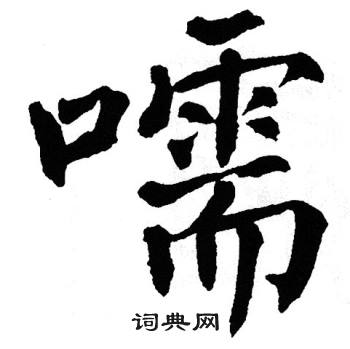 嚅
词典网